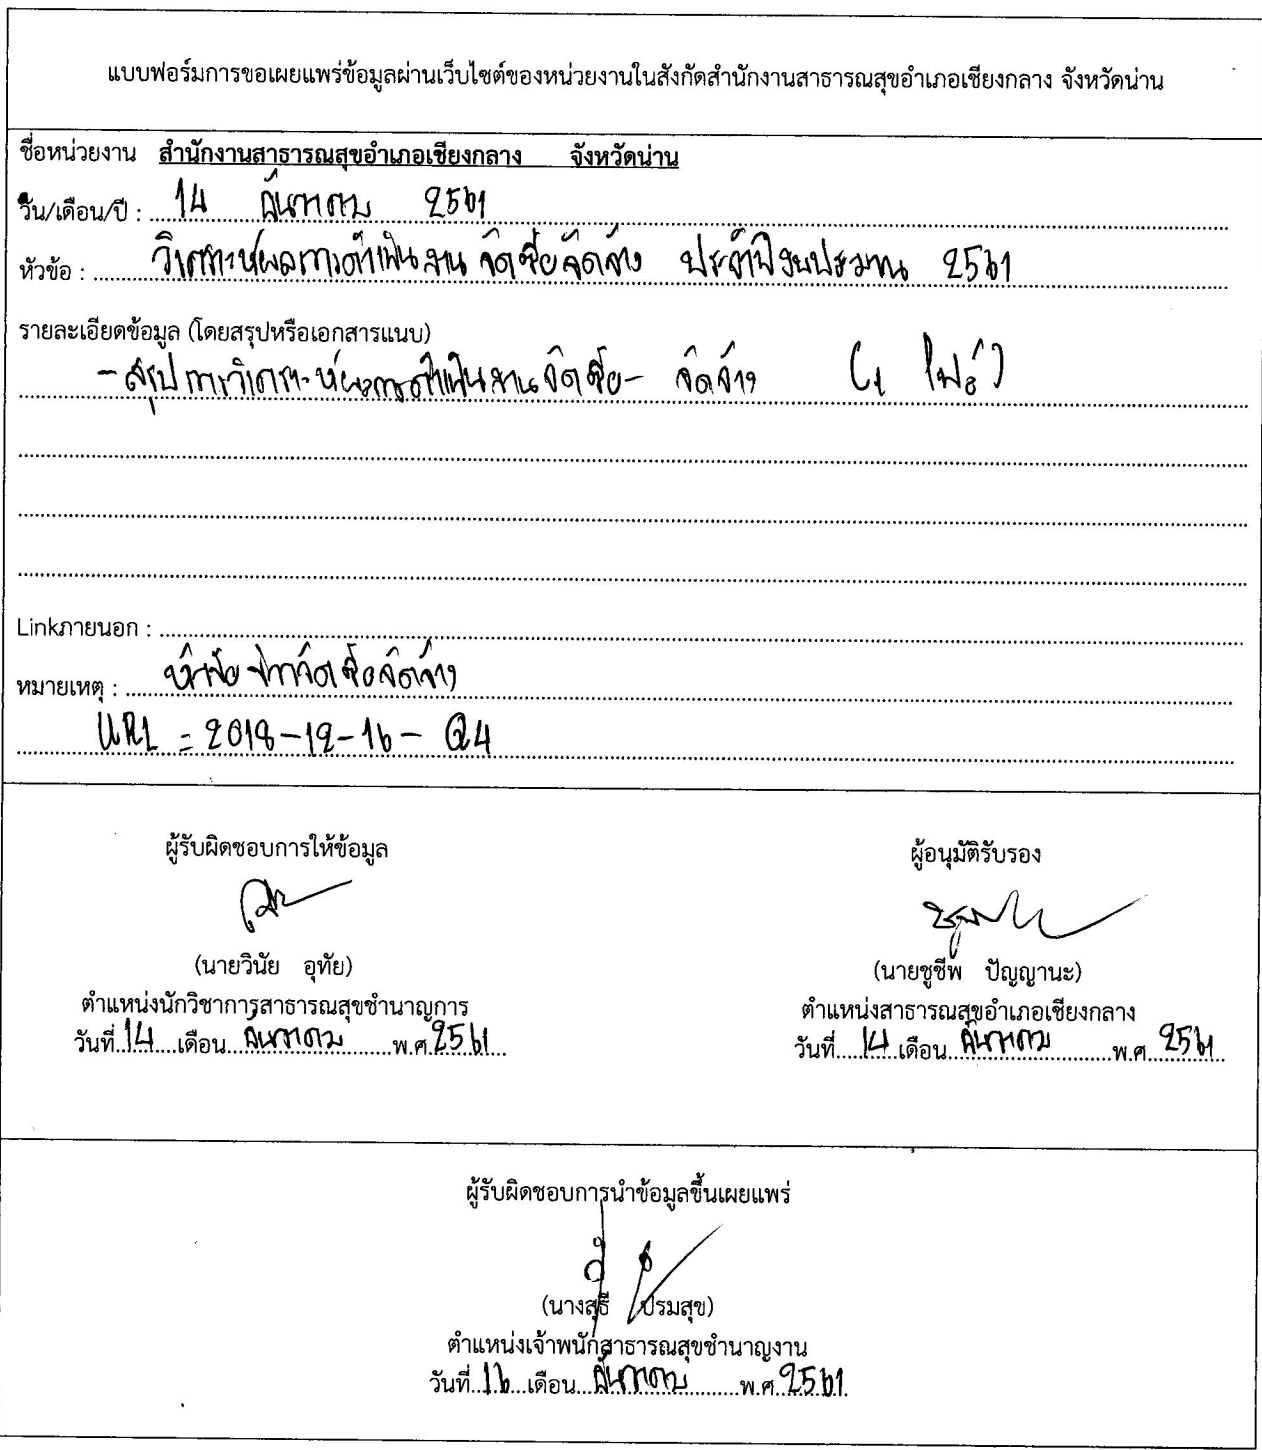 แบบฟอร์มการขอเผยแพร่ข้อมูลผ่านเว็บไซต์ของหน่วยงานในสังกัดสำนักงานสาธารณสุขอำเภอเชียงกลาง จังหวัดน่าน
ชื่อหน่วยงาน สำนักงานสาธารณสุขอำเภอเชียงกลาง จังหวัดน่าน
วัน/เดือน/ปี : 14 ธันวาคม 2561
หัวข้อ : วิเคราะห์ผลการดำเนินงาน จัดซื้อจัดจ้าง ประจำปีงบประมาณ 2561
รายละเอียดข้อมูล (โดยสรุปหรือเอกสารแนบ)
- สรุปการวิเคราะห์ผลการดำเนินงานจัดซื้อ - จัดจ้าง (1 ไฟล์)
Linkภายนอก :
หมายเหตุ : จัดซื้อจัดจ้าง
URL = 2018-12-16- Q4
ผู้รับผิดชอบการให้ข้อมูล
ผู้อนุมัติรับรอง
(นายวินัย อุทัย)
(นายชูชีพ ปัญญานะ)
ตำแหน่งนักวิชาการสาธารณสุขชำนาญการ
ตำแหน่งสาธารณสุขอำเภอเชียงกลาง
วันที่ 14 เดือน ธันวาคม พ.ศ. 2561
วันที่ 14 เดือน ธันวาคม พ.ศ. 2561
ผู้รับผิดชอบการนำข้อมูลขึ้นเผยแพร่
(นางสุธี ปรมสุข)
ตำแหน่งเจ้าพนักสาธารณสุขชำนาญงาน
วันที่ 16 เดือน ธันวาคม พ.ศ. 2561